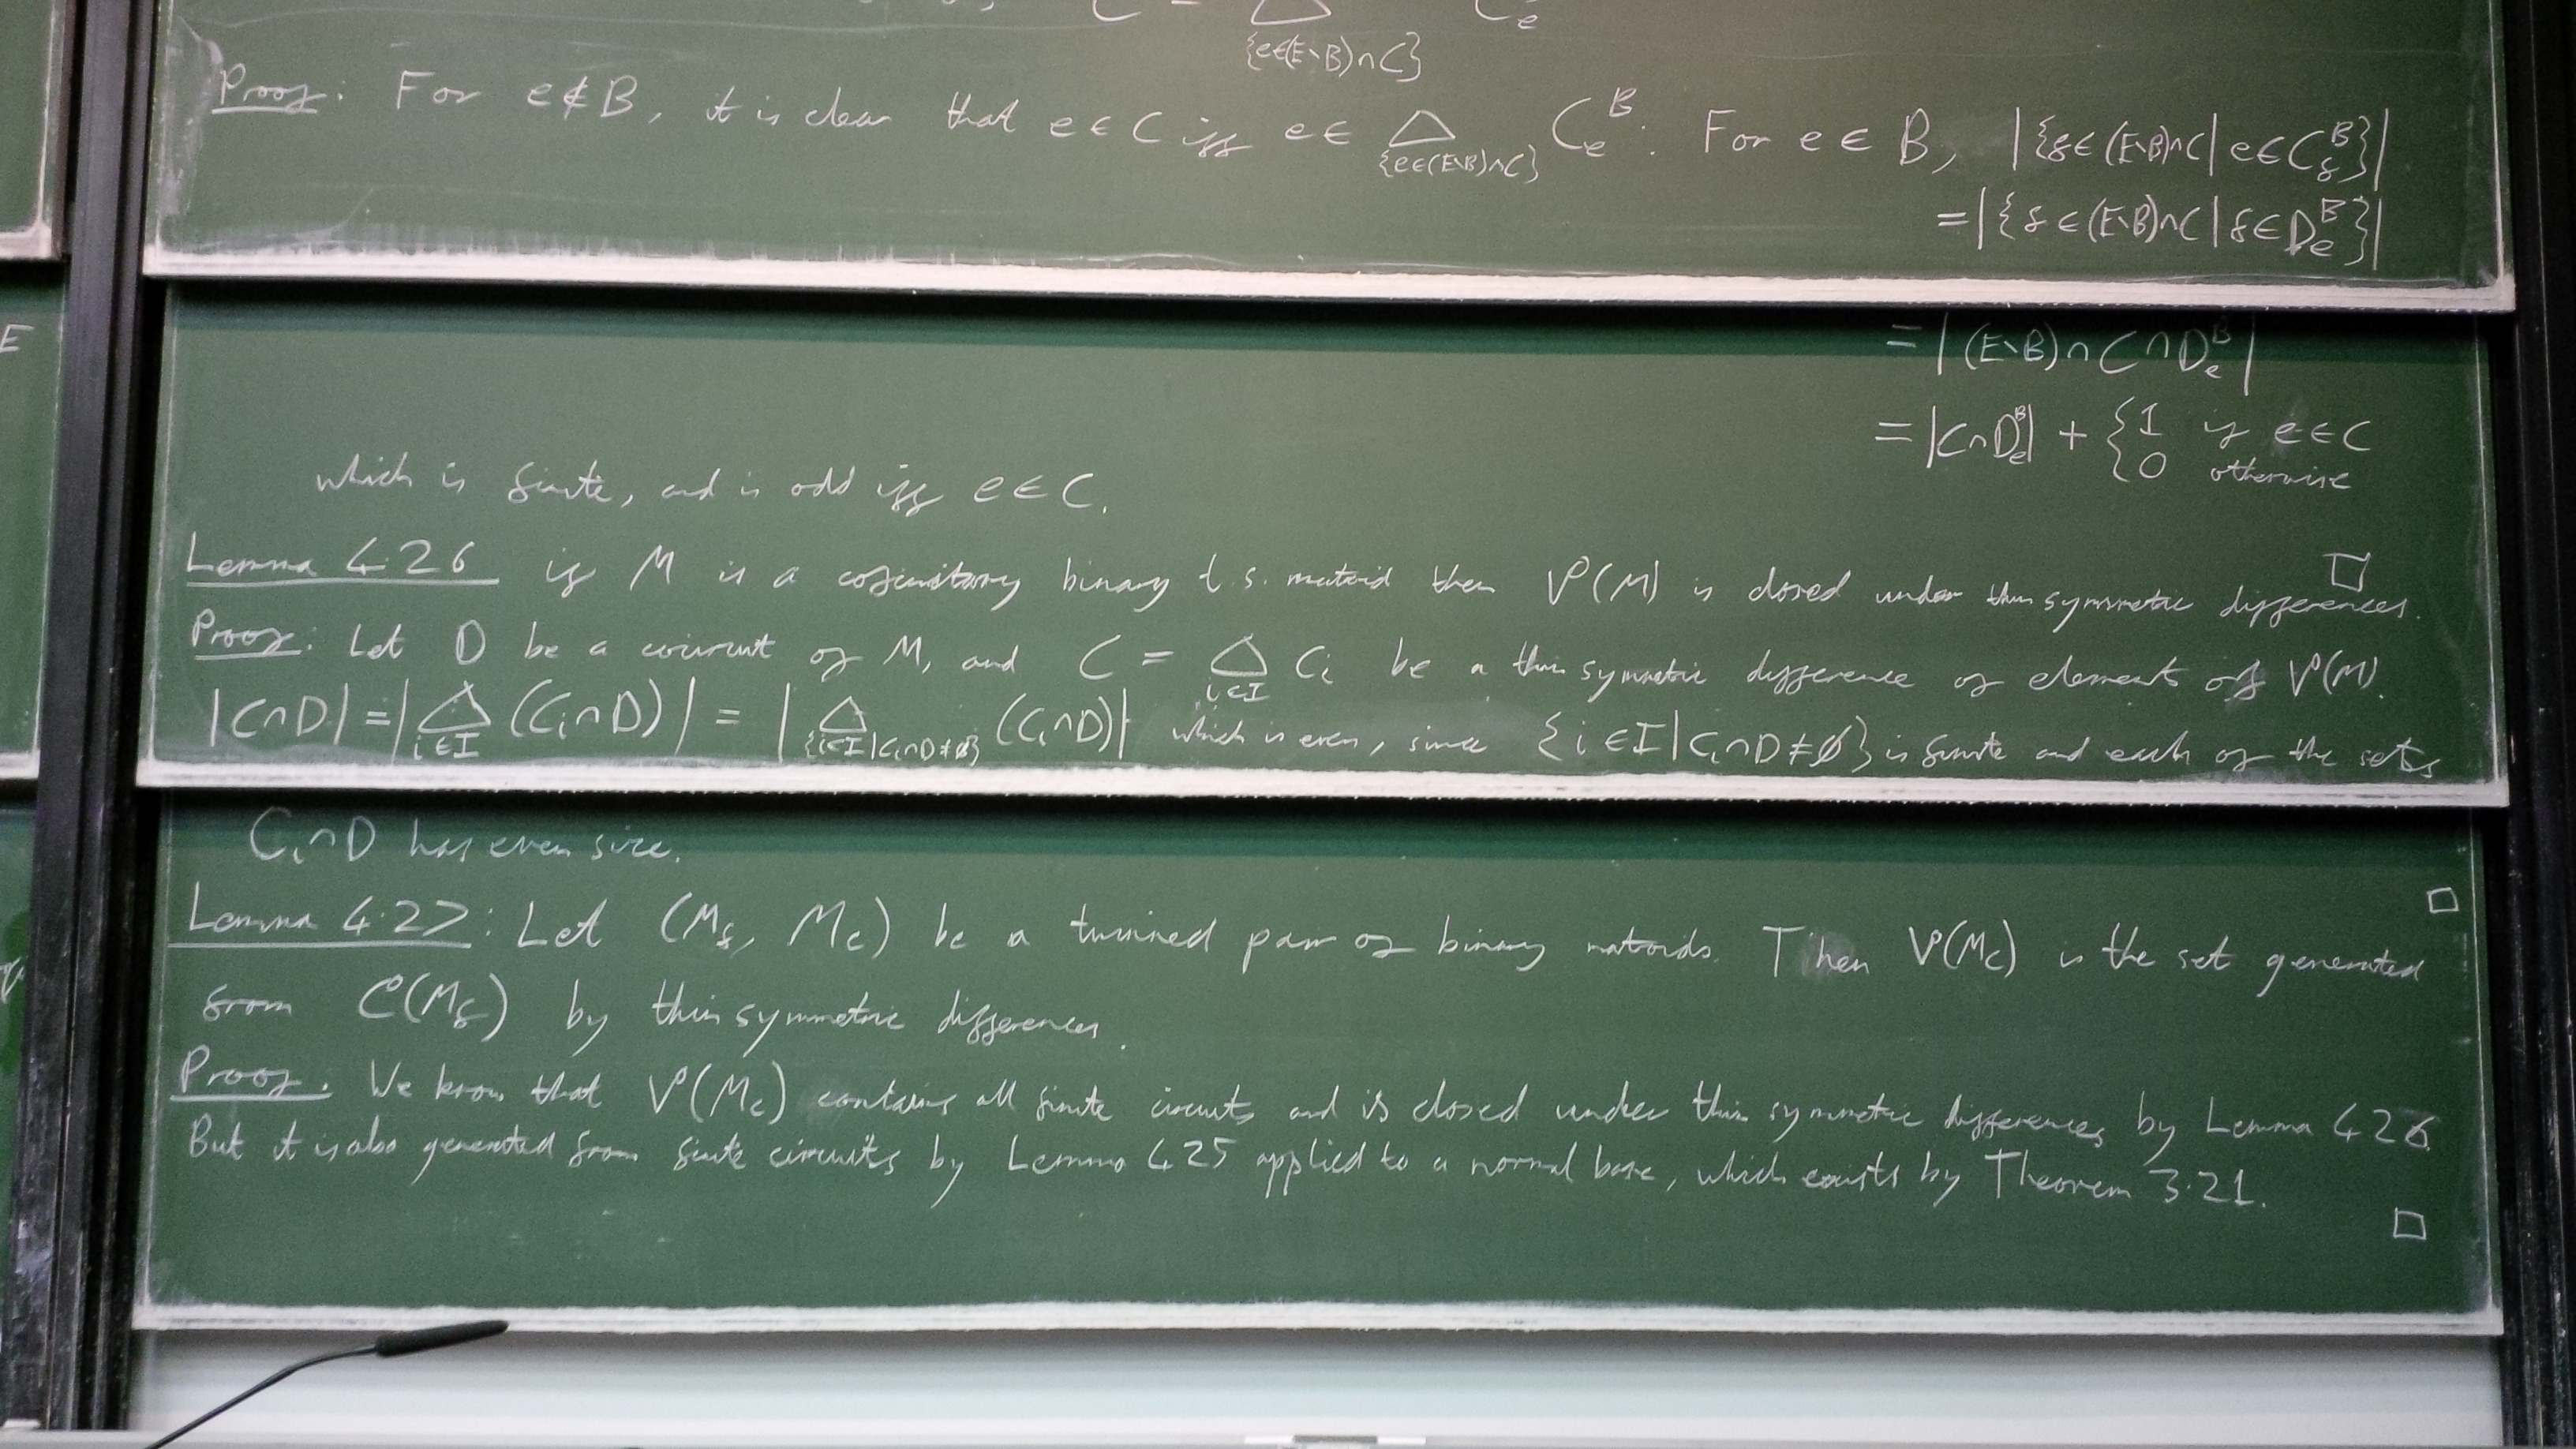 C = △ C_e
{e∈(E∖B)∩C}
Proof: For e∉B, it is clear that e∈C iff e∈ △_{e∈(E∖B)∩C} C_e^B. For e∈B, |{f∈(E∖B)∩C | e∈C_f^B}|
=|{f∈(E∖B)∩C | f∈D_e^B}|
E
= |(E∖B)∩C∩D_e^B|
= |C∩D_e^B| + {1 if e∈C
0 otherwise
which is finite, and is odd iff e∈C.
□
Lemma 4.26 if M is a cofinitary binary t.s. matroid then V(M) is closed under thin symmetric differences.
Proof: Let D be a cocircuit of M, and C = △_{i∈I} C_i be a thin symmetric difference of elements of V(M).
|C∩D| = |△_{i∈I} (C_i∩D)| = |△_{{i∈I|C_i∩D≠∅}} (C_i∩D)| which is even, since {i∈I | C_i∩D≠∅} is finite and each of the sets
C_i∩D has even size.
□
Lemma 4.27: Let (M_f, M_c) be a twinned pair of binary matroids. Then V(M_c) is the set generated
from C(M_f) by thin symmetric differences.
Proof. We know that V(M_c) contains all finite circuits and is closed under thin symmetric differences by Lemma 4.26.
But it is also generated from finite circuits by Lemma 4.25 applied to a normal base, which exists by Theorem 3.21.
□